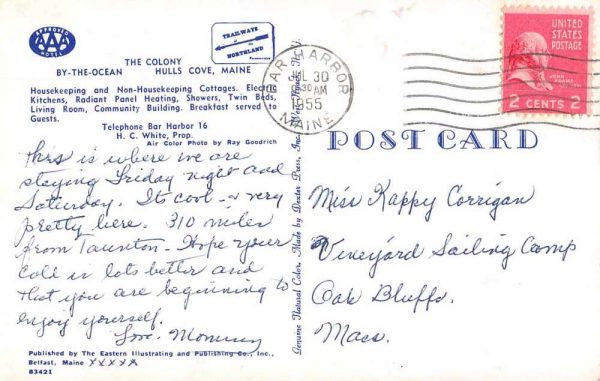 APPROVED
AAA
HOTEL
TRAILWAYS
of the
NORTHLAND
THE COLONY
BY-THE-OCEAN HULLS COVE, MAINE
Housekeeping and Non-Housekeeping Cottages. Electric
Kitchens, Radiant Panel Heating, Showers, Twin Beds,
Living Room, Community Building. Breakfast served to
Guests.
Telephone Bar Harbor 16
H. C. White, Prop.
Air Color Photo by Ray Goodrich
This is where we are
staying Friday night and
Saturday. Its cool - & very
pretty here. 310 miles
from Taunton - Hope your
cold is lots better and
that you are beginning to
enjoy yourself.
Love. Mommy
Published by The Eastern Illustrating and Publishing Co., Inc.,
Belfast, Maine XXXXX
83421
Genuine Natural Color. Made by Dexter Press, Inc.
BAR HARBOR
JUL 30
30 AM
1955
MAINE
UNITED
STATES
POSTAGE
JOHN ADAMS
2 CENTS 2
POST CARD
Miss Kappy Corrigan
Vineyard Sailing Camp
Oak Bluffs.
Mass.